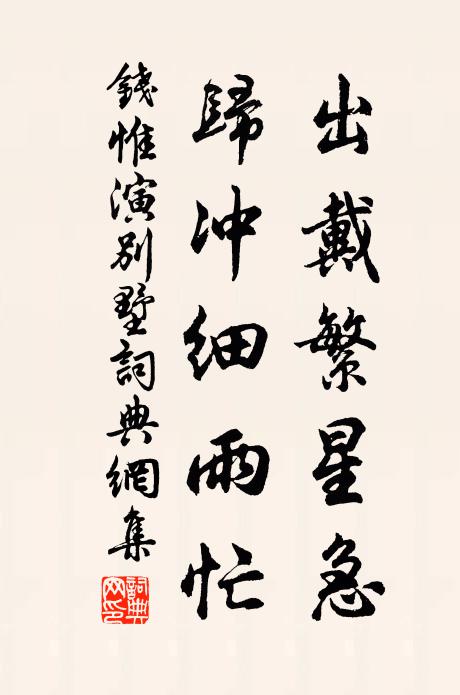 出戴繁星急
歸冲細雨忙
錢惟演別墅詞典網集
詞典網印